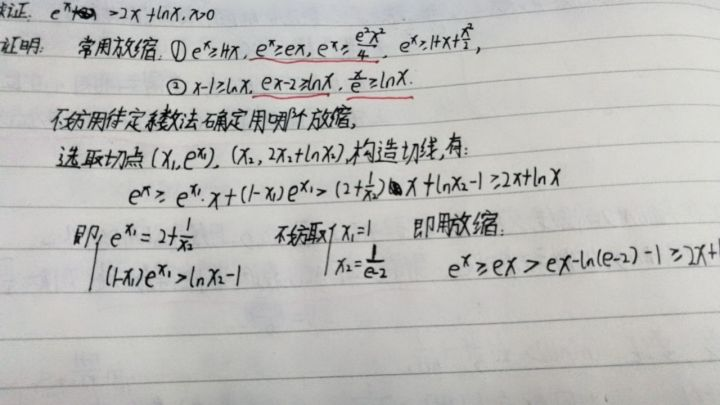 求证: e^x > 2x + lnx, x>0
证明: 常用放缩: ① e^x ≥ 1+x, e^x ≥ ex, e^x ≥ e²x²/4, e^x ≥ 1+x+x²/2,
② x-1 ≥ lnx, ex-2 ≥ lnx, x/e ≥ lnx.
不妨用待定系数法确定用哪个放缩,
选取切点 (x₁, e^x₁), (x₂, 2x₂+lnx₂), 构造切线, 有:
e^x ≥ e^x₁·x + (1-x₁)e^x₁ > (2+1/x₂)x + lnx₂ - 1 ≥ 2x + lnx
即 { e^x₁ = 2+1/x₂ 不妨取 { x₁=1 即用放缩:
(1-x₁)e^x₁ > lnx₂-1 x₂ = 1/(e-2) e^x ≥ ex > ex-ln(e-2)-1 ≥ 2x+l